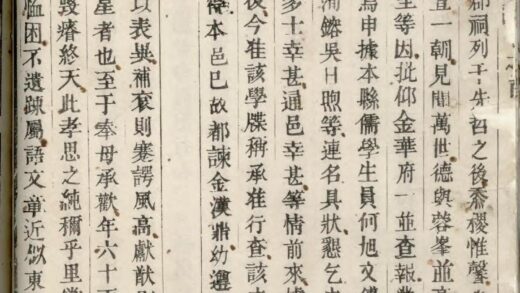 祠列于先哲之後黍稷惟馨
宣一朝見聞萬世德與蓉峯並
等因批仰金華府一並查報
爲申據本縣儒學生員何旭文
洧鎔吳日煦等連名具狀懇乞
多士幸甚通邑幸甚等情前來
後今准該學牒稱承准行查該
本邑已故都諫金漢鼎幼遭
以表吳補袞則蹇諤風高獻猷
星者也至于奉母承歡年六十
毀瘠終天此孝思之純穪乎里
困不遺踈屬語文章近似東